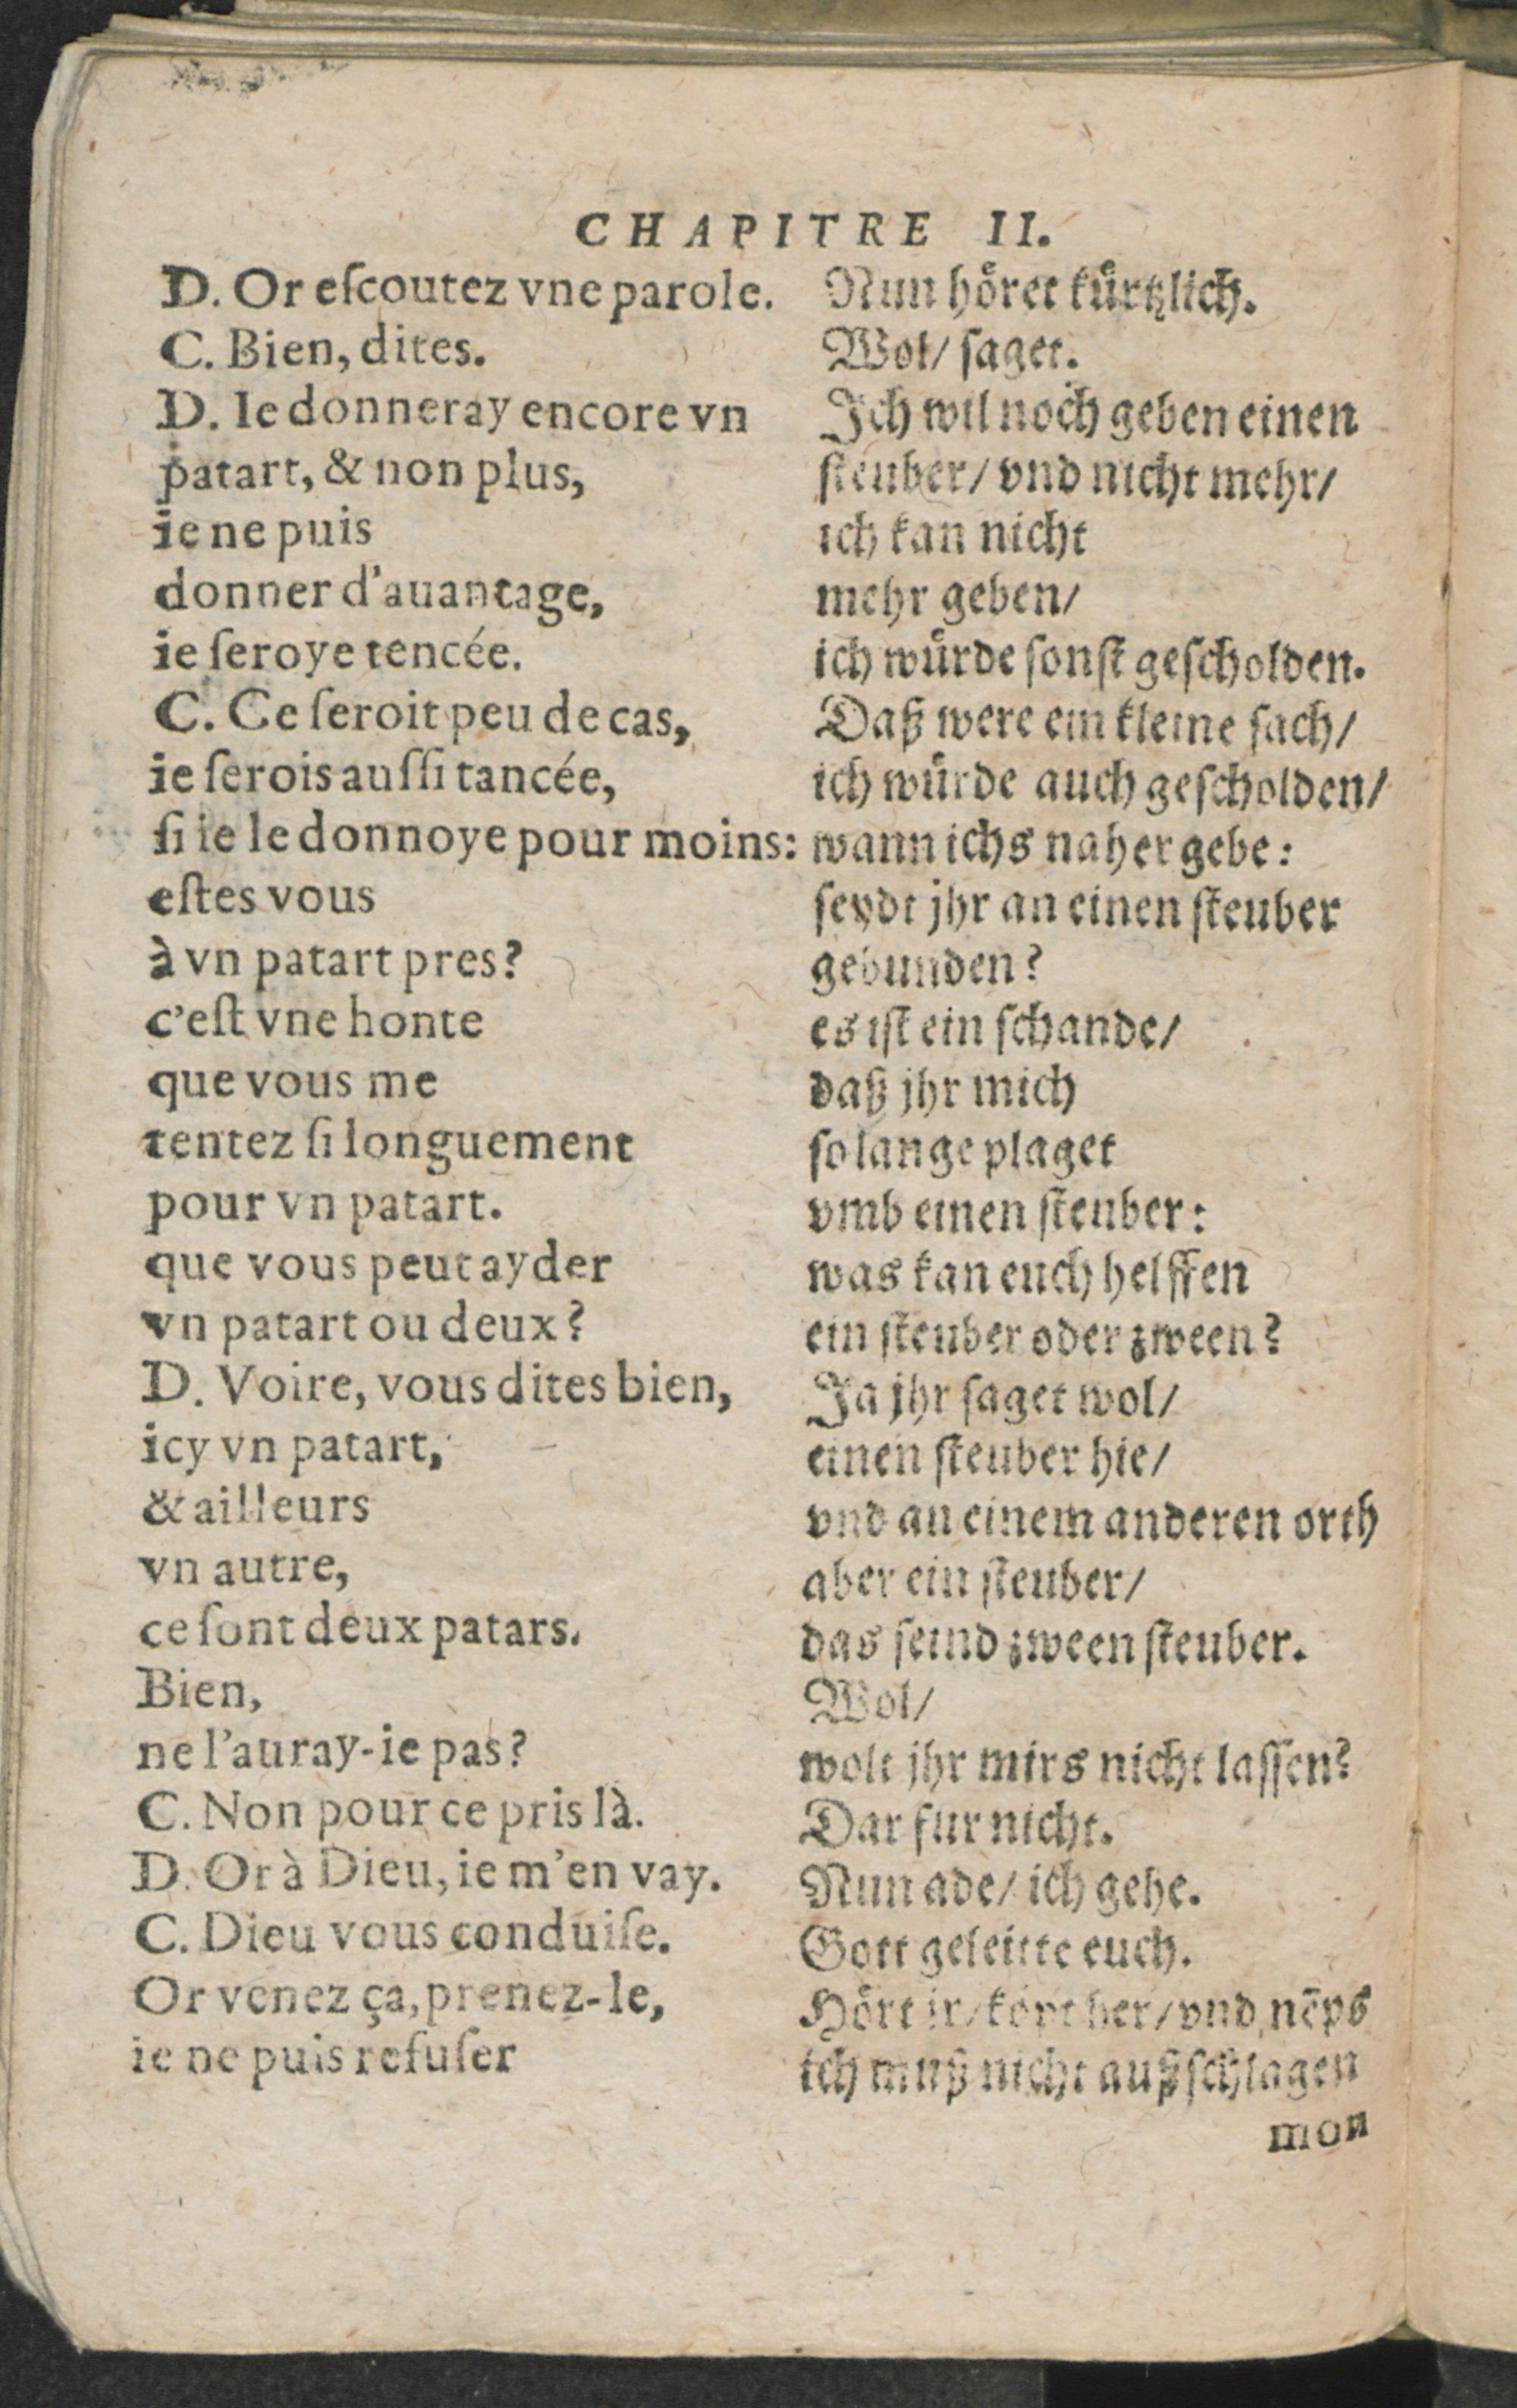 CHAPITRE II.
D. Or eſcoutez vne parole.
C. Bien, dites.
D. Ie donneray encore vn
patart, & non plus,
ie ne puis
donner d'auantage,
ie ſeroye tencée.
C. Ce ſeroit peu de cas,
ie ſerois auſſi tancée,
ſi ie le donnoye pour moins:
eſtes vous
à vn patart pres?
c'eſt vne honte
que vous me
tentez ſi longuement
pour vn patart.
que vous peut ayder
vn patart ou deux?
D. Voire, vous dites bien,
icy vn patart,
& ailleurs
vn autre,
ce ſont deux patars.
Bien,
ne l'auray-ie pas?
C. Non pour ce pris là.
D. Or à Dieu, ie m'en vay.
C. Dieu vous conduiſe.
Or venez ça, prenez-le,
ie ne puis refuſer
Nun hoͤret kuͤrtzlich.
Wol/ ſaget.
Ich wil noch geben einen
ſteuber/ vnd nicht mehr/
ich kan nicht
mehr geben/
ich wuͤrde ſonſt geſcholden.
Daß were ein kleine ſach/
ich wuͤrde auch geſcholden/
wann ichs naher gebe:
ſeydt jhr an einen ſteuber
gebunden?
es iſt ein ſchande/
daß jhr mich
ſo lange plaget
vmb einen ſteuber:
was kan euch helffen
ein ſteuber oder zween?
Ja jhr ſaget wol/
einen ſteuber hie/
vnd an einem anderen orth
aber ein ſteuber/
das ſeind zween ſteuber.
Wol/
wolt jhr mirs nicht laſſen?
Dar fur nicht.
Nun ade/ ich gehe.
Gott geleitte euch.
Hoͤrt ir/ her/ vnd nēps
ich muß nicht außſchlagen
mon